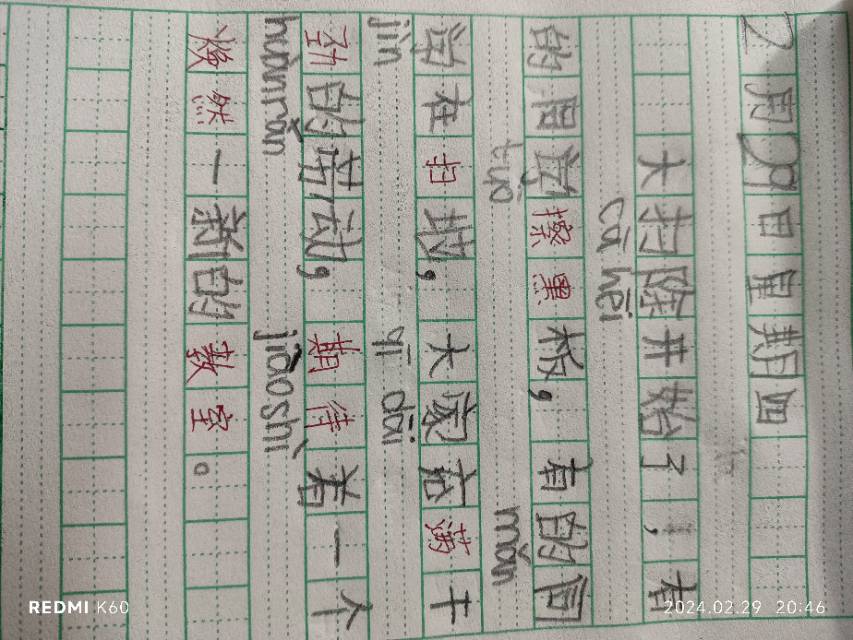 2月29日星期四
大扫除开始了,有
cā hēi
的同学擦黑板,有的同
tuō mǎn
学在扫地,大家充满干
jìn qī dài
劲的劳动,期待着一个
huànrán jiāoshì
焕然一新的教室。
REDMI K60
2024.02.29 20:46